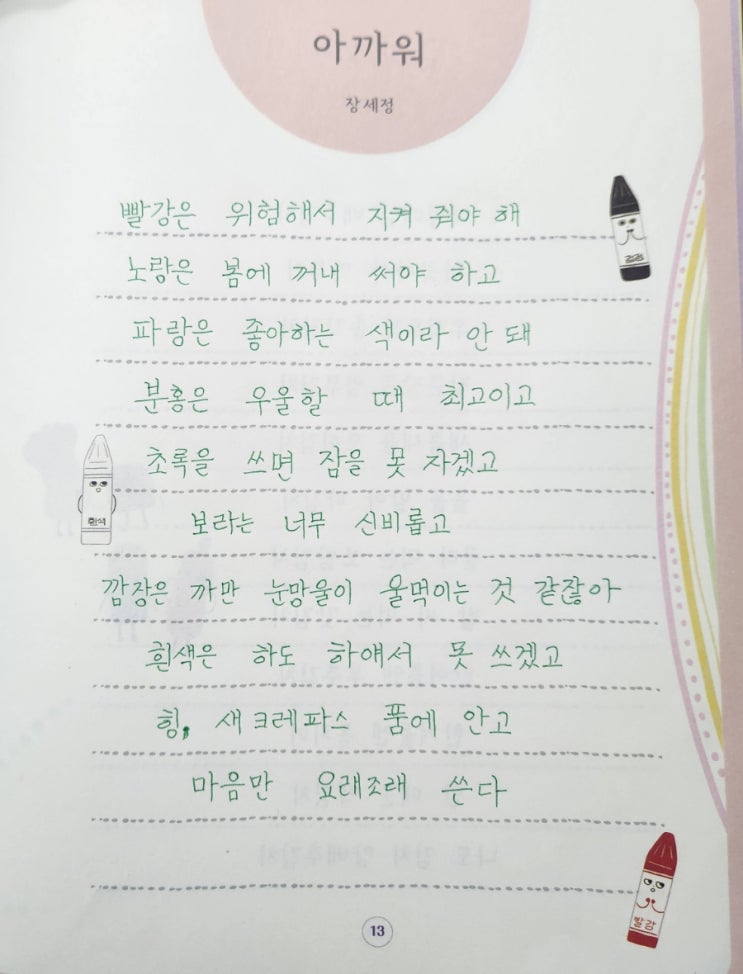 아까워
장세정
빨강은 위험해서 지켜 줘야 해
노랑은 봄에 꺼내 써야 하고
파랑은 좋아하는 색이라 안 돼
분홍은 우울할 때 최고이고
초록을 쓰면 잠을 못 자겠고
보라는 너무 신비롭고
깜장은 까만 눈망울이 울먹이는 것 같잖아
흰색은 하도 하얘서 못 쓰겠고
힝, 새 크레파스 품에 안고
마음만 요래조래 쓴다
검정
흰색
빨강
13